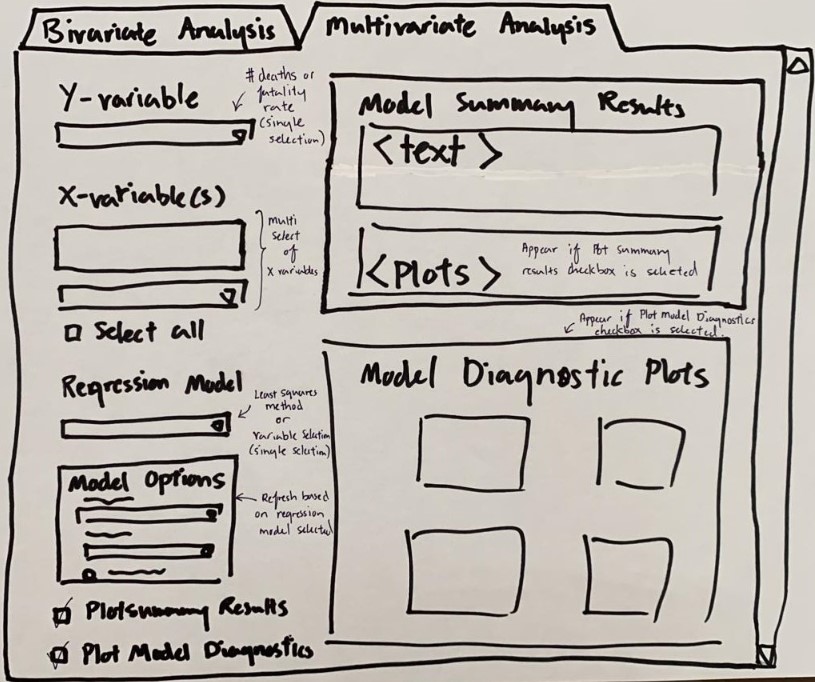 Bivariate Analysis
Multivariate Analysis
Y-variable
# deaths or
fatality
rate
(single
selection)
X-variable(s)
multi
select
of
X variables
Select all
Regression Model
Least squares
method
or
variable selection
(single selection)
Model Options
Refresh based
on regression
model selected
Plot summary Results
Plot Model Diagnostics
Model Summary Results
<text>
<Plots>
Appear if Plot summary
results checkbox is selected
Appear if Plot model Diagnostics
checkbox is selected.
Model Diagnostic Plots